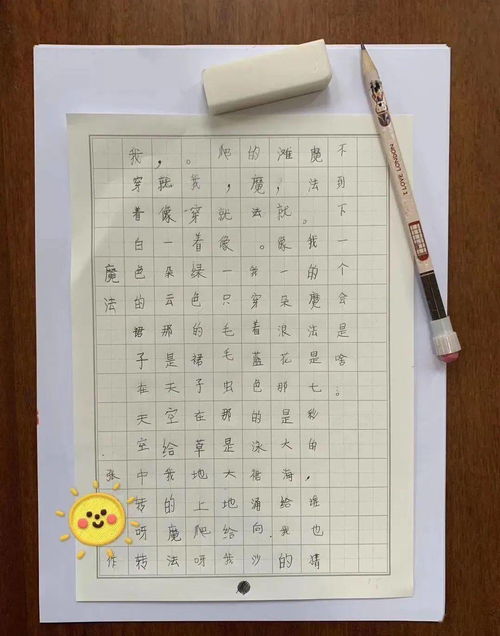 魔法
张 作
我穿着白色的裙子在天空中转呀转
，就像一朵云那是天空给我的魔法
。我穿着绿色的裙子在草地上爬呀
爬，就像一只毛毛虫那是大地给我
的魔法。我穿着蓝色的泳裙涌向沙
滩，就像一朵浪花那是大海给我的
魔法。我的魔法是七彩的，谁也猜
不到下一个会是啥。
I LOVE LONDON